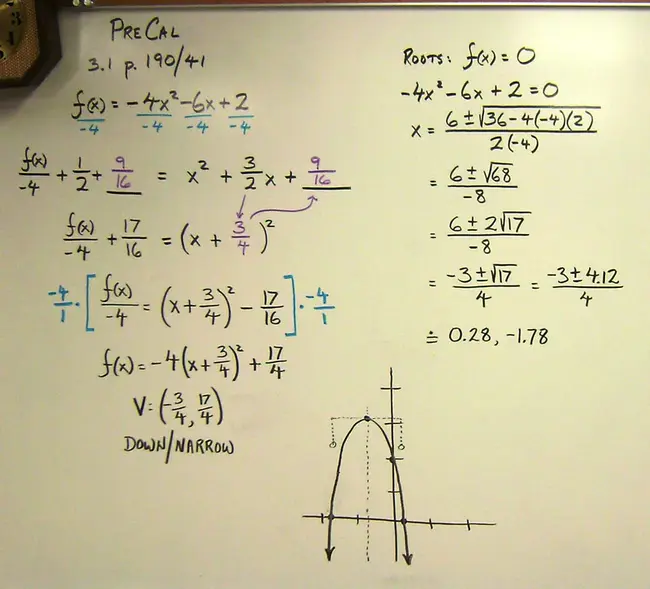 PRECAL
3.1 p. 190/41
f(x)/-4 = -4x²/-4 -6x/-4 +2/-4
f(x)/-4 + 1/2 + 9/16 = x² + 3/2 x + 9/16
f(x)/-4 + 17/16 = (x + 3/4)²
-4/1 · [f(x)/-4 = (x + 3/4)² - 17/16] · -4/1
f(x) = -4(x + 3/4)² + 17/4
V = (-3/4, 17/4)
DOWN/NARROW
ROOTS: f(x) = 0
-4x² - 6x + 2 = 0
x = 6 ± √36 - 4(-4)(2) / 2(-4)
= 6 ± √68 / -8
= 6 ± 2√17 / -8
= -3 ± √17 / 4 = -3 ± 4.12 / 4
≐ 0.28, -1.78